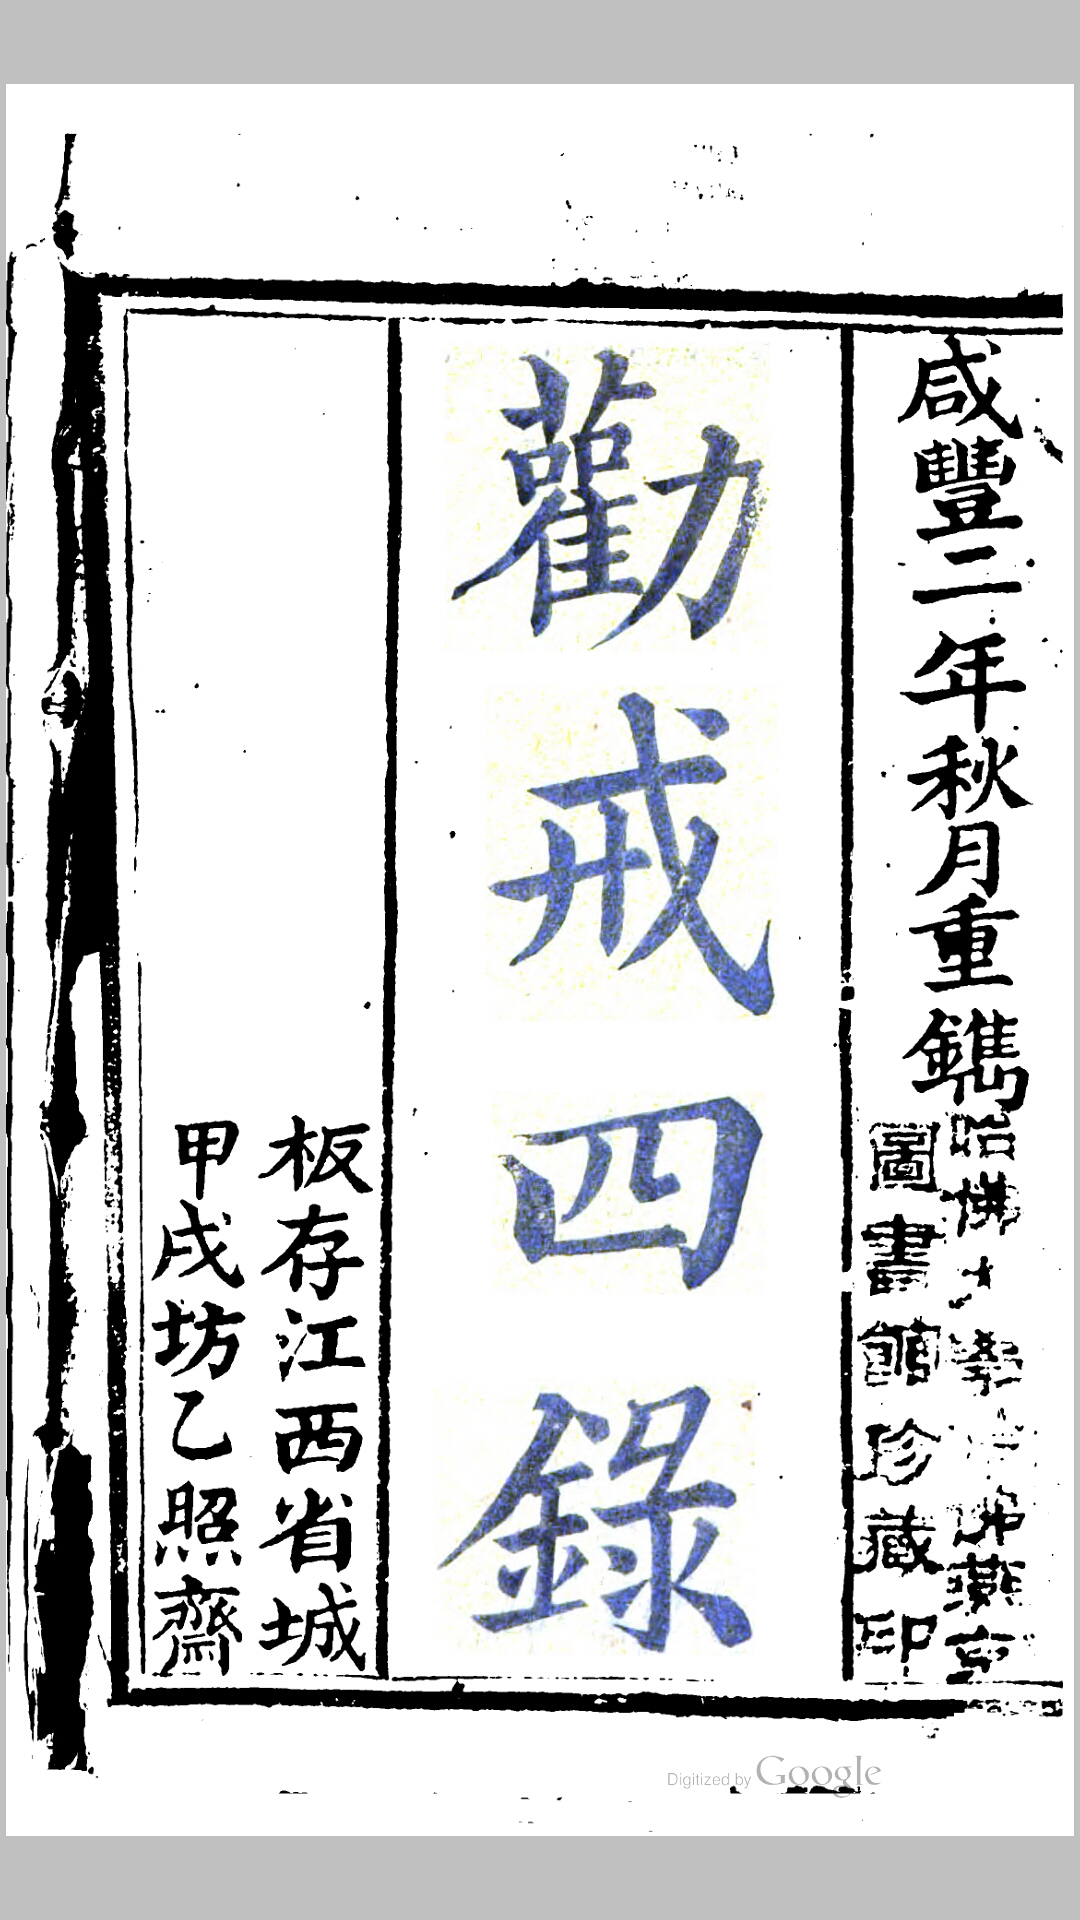 咸豐二年秋月重鐫
哈佛大學
燕京
圖書館珍藏印
勸戒四錄
板存江西省城
甲戌坊乙照齋
Digitized by Google